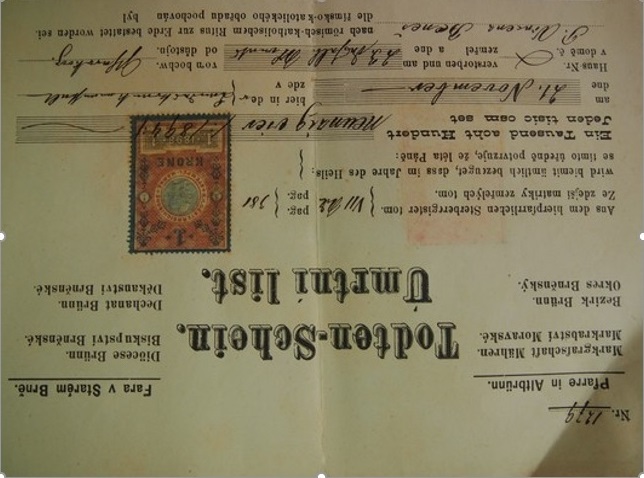 Nr. 1379
Pfarre in Altbrünn. Fara v Starém Brně.
Markgrafschaft Mähren. Diöcese Brünn.
Markrabství Moravské. Biskupství Brněnské.
Todten-Schein.
Bezirk Brünn. Dechanat Brünn.
Okres Brněnský. Děkanství Brněnské.
Úmrtní list.
1
KRONE
Aus dem hierpfarrlichen Sterberegister tom. VII pag. 381
Ze zdejší matriky zemřelých tom. pag.
wird hiemit ämtlich bezeuget, dass im Jahre des Heils:
se tímto úředně potvrzuje, že léta Páně:
Ein Tausend acht Hundert neunzig vier / 1894 /
Jeden tisíc osm set
am 21. November hier in der
dne zde v
Haus Nr. verstorben und am 23. von hochw.
v domě č. zemřel a dne od důstojn.
nach römisch-katholischem Ritus zur Erde bestattet worden sei.
dle římsko-katolického obřadu pochován byl